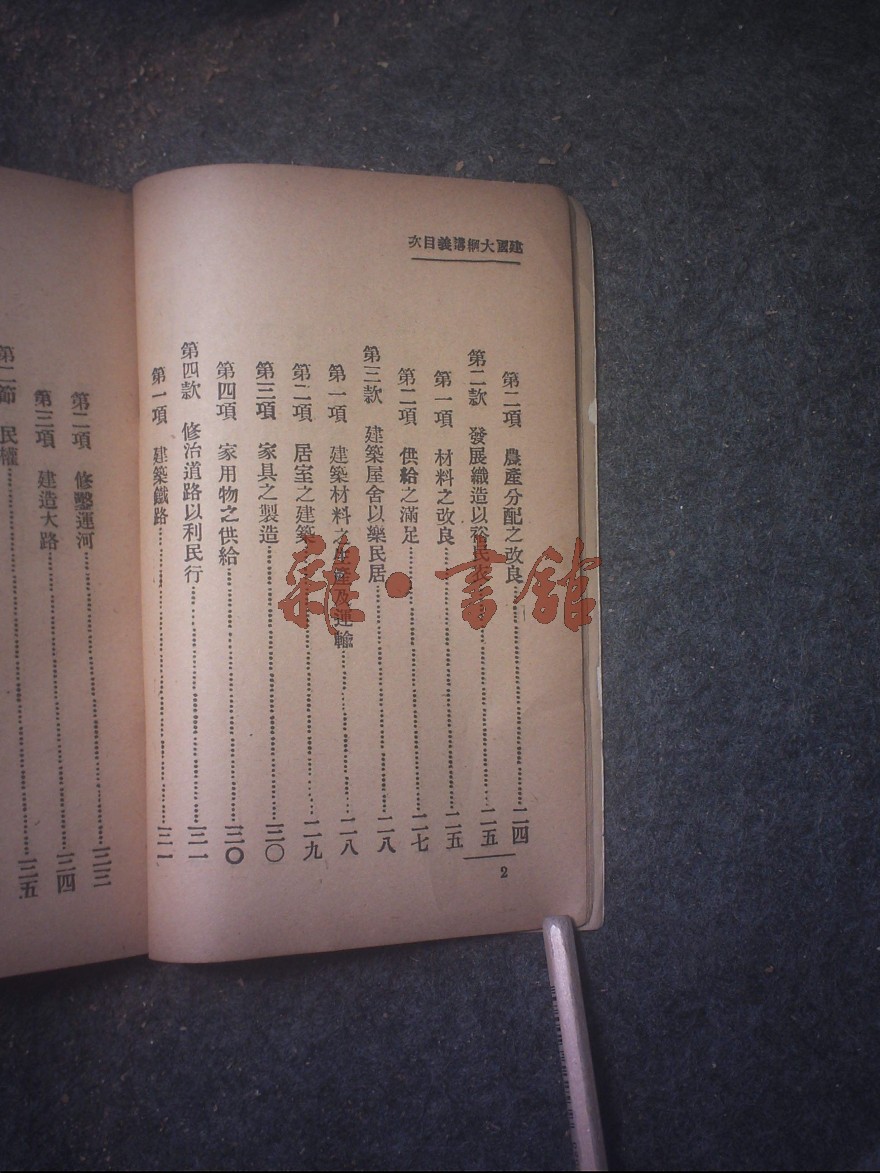 建國大綱講義目次
第二項 農產分配之改良……二四
第二款 發展織造以裕民衣……二五
第一項 材料之改良……二五
第二項 供給之滿足……二七
第三款 建築屋舍以樂民居……二八
第一項 建築材料之生產及運輸……二八
第二項 居室之建築……二九
第三項 家具之製造……三〇
第四項 家用物之供給……三〇
第四款 修治道路以利民行……三一
第一項 建築鐵路……三一
2
第二項 修鑿運河……三三
第三項 建造大路……三四
第二節 民權……三五
雜·書館